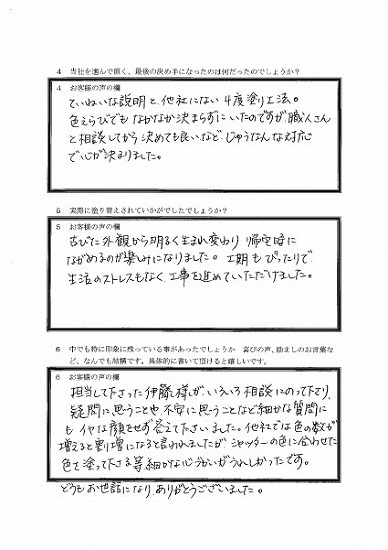 4 当社を選んで頂く、最後の決め手になったのは何だったのでしょうか？
4 お客様の声の欄
ていねいな説明と、他社にない4度塗り工法。
色えらびでもなかなか決まらずにいたのですが、職人さん
と相談してから決めても良いなど、じゅうなんな対応
で心が決まりました。
5 実際に塗り替えされていかがでしたでしょうか？
5 お客様の声の欄
古びた外観から明るく生まれ変わり 帰宅時に
ながめるのが楽しみになりました。工期もぴったりで
生活のストレスもなく、工事を進めていただけました。
6 中でも特に印象に残っている事があったでしょうか 喜びの声、励ましのお言葉な
ど、なんでも結構です。具体的に書いて頂けると嬉しいです。
6 お客様の声の欄
担当して下さった伊藤様が、いろいろ相談にのって下さり、
疑問に思うことや不安に思うことなど細かな質問に
も イヤな顔をせず答えて下さいました。他社では色の数が
増えると割り増になると言われましたが シャッターの色に合わせた
色で塗って下さる等細かな心づかいがうれしかったです。
どうもお世話になり、ありがとうございました。